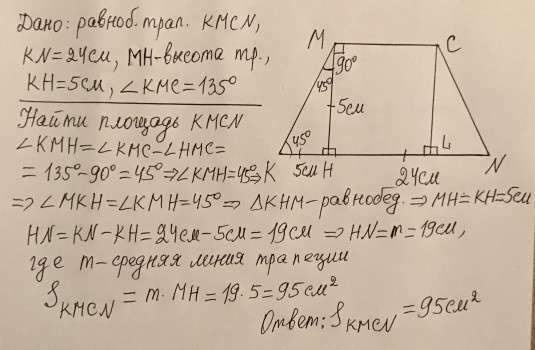 Дано: равноб. трап. KMCN,
KN=24см, MH-высота тр.,
KH=5см, ∠KMC=135°
Найти площадь KMCN
∠KMH=∠KMC-∠HMC=
=135°-90°=45°⇒∠KMH=45°⇒
⇒∠MKH=∠KMH=45°⇒ ΔKHM-равнобед. ⇒ MH=KH=5см
HN=KN-KH=24см-5см=19см ⇒ HN=m=19см,
где m-средняя линия трапеции
S KMCN = m·MH=19·5=95см²
Ответ: S KMCN =95см²
M C
90°
45°
5см
45°
K 5см H L N
24см